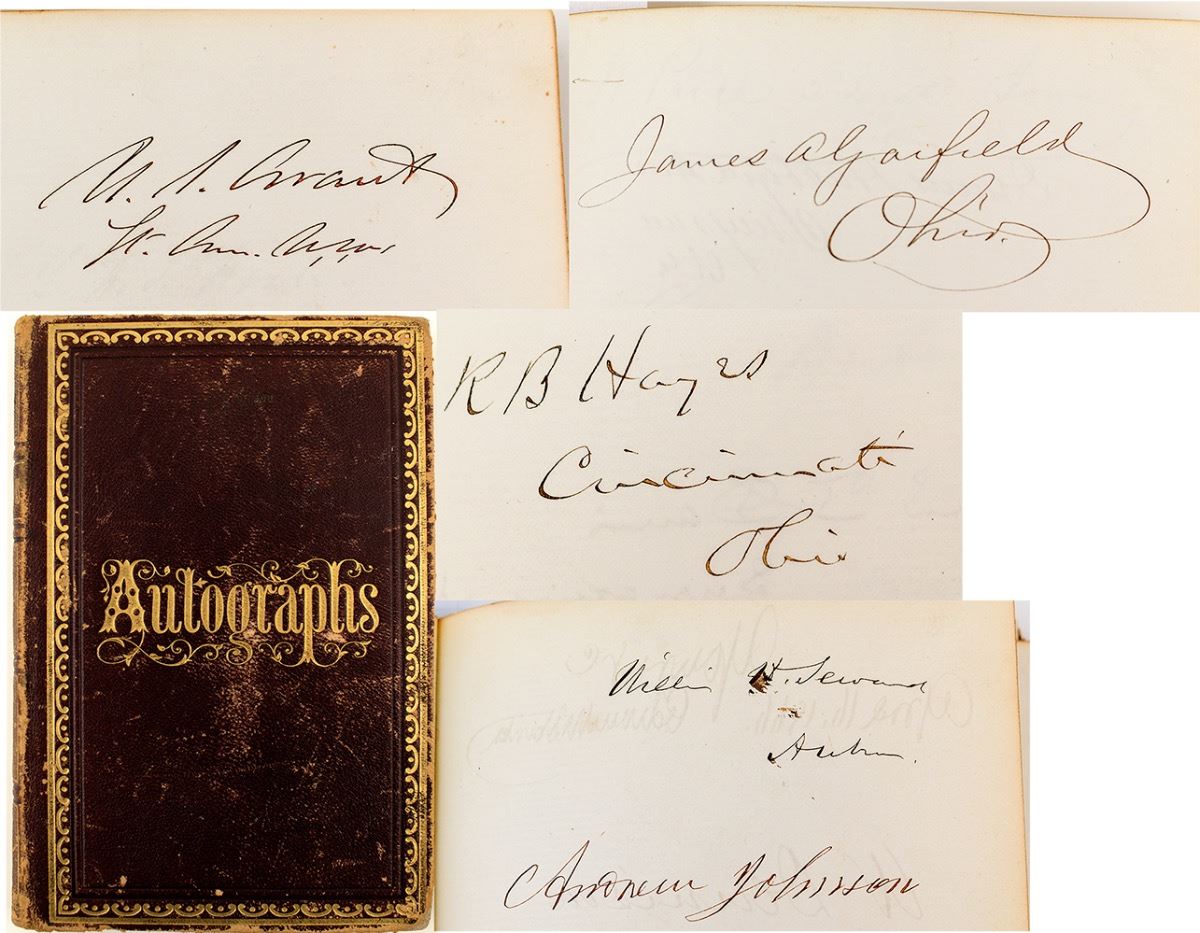 U. S. Grant
Lt. Gen. U.S.A.
James A Garfield
Ohio.
R B Hayes
Cincinnati
Ohio
Autographs
William H. Seward
Auburn.
Andrew Johnson